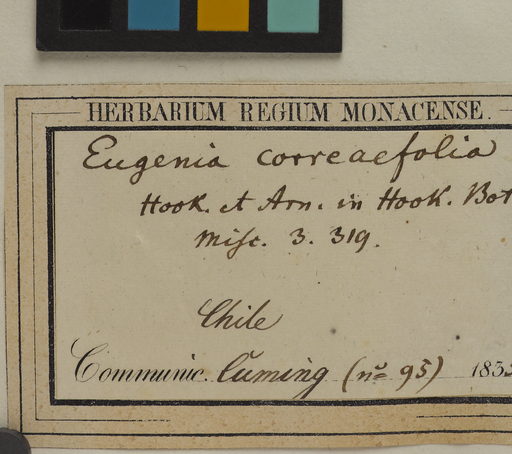 HERBARIUM REGIUM MONACENSE.
Eugenia correaefolia
Hook. et Arn. in Hook. Bot
Misc. 3. 319.
Chile
Communic. Cuming (no 95) 183